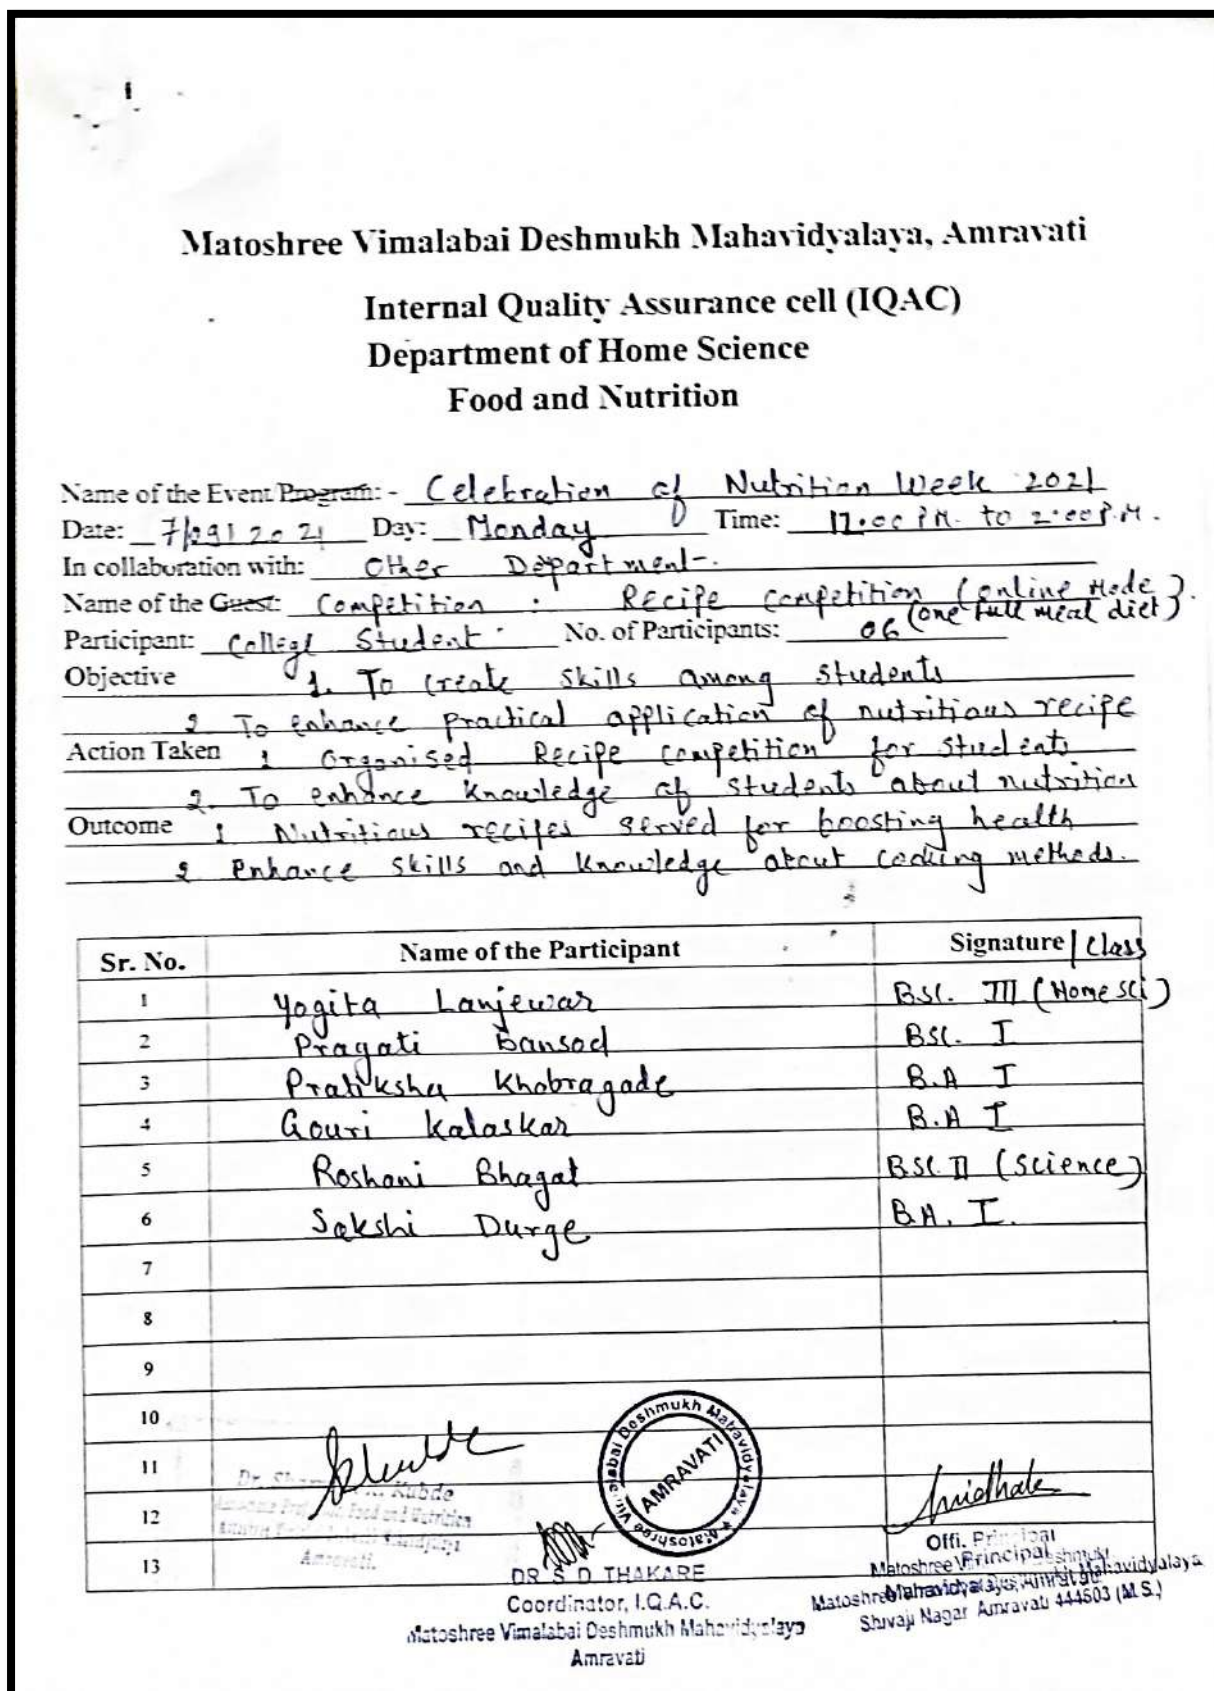 Matoshree Vimalabai Deshmukh Mahavidyalaya, Amravati
Internal Quality Assurance cell (IQAC)
Department of Home Science
Food and Nutrition
Name of the Event/Program: - Celebration of Nutrition Week 2021
Date: 7/09/2021 Day: Monday Time: 12.00 P.M. to 2.00 P.M.
In collaboration with: Other Department.
Name of the Guest: Competition : Recipe competition (online Mode).
(one full meal diet)
Participant: College Student No. of Participants: 06
Objective 1. To create skills among students
2 To enhance practical application of nutritious recipe
Action Taken 1 Organised Recipe competition for students
2. To enhance knowledge of students about nutrition
Outcome 1 Nutritious recipes served for boosting health
2 enhance skills and knowledge about cooking methods.
Sr. No. Name of the Participant Signature | Class
1 Yogita Lanjewar BSc. III (Home Sci)
2 Pragati Bansod BSc. I
3 Pratiksha Khobragade B.A I
4 Gouri Kalaskar B.A I
5 Roshani Bhagat BSc. II (Science)
6 Sakshi Durge B.A. I.
7
8
9
10
11
12
13
Dr. Kubde
Food and Nutrition
Amravati.
Deshmukh Mahavidyalaya * Matoshree
AMRAVATI
DR S D THAKARE
Coordinator, I.Q.A.C.
Matoshree Vimalabai Deshmukh Mahavidyalaya
Amravati
Offi. Principal
Principal
Matoshree Mahavidyalaya
Shivaji Nagar Amravati 444603 (M.S.)